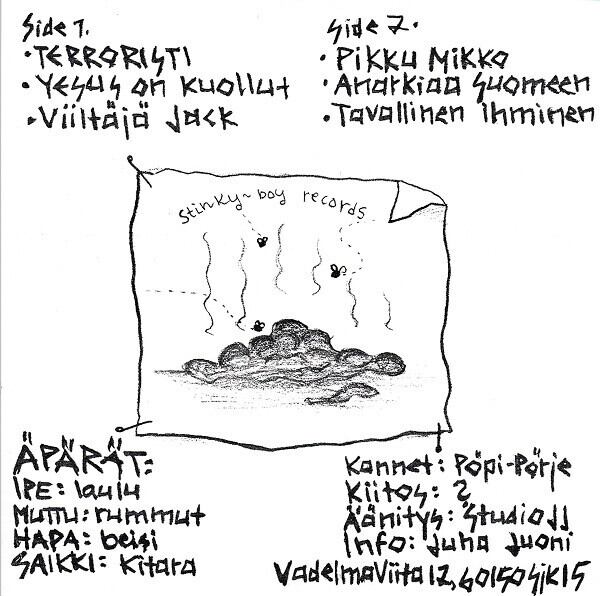 Side 1.
• TERRORISTI
• Yesus on kuollut
• Viiltäjä Jack
Side 2.
• Pikku Mikko
• Anarkiaa Suomeen
• Tavallinen ihminen
Stinky~boy records
ÄPÄRÄT:
IPE: laulu
Muttu: rummut
HAPA: beisi
SAIKKI: kitara
Kannet: Pöpi-Pörje
Kiitos: 2
Äänitys: StudioJJ
Info: Juha Juoni
VadelmaViita 12, 60150 Sjk 15